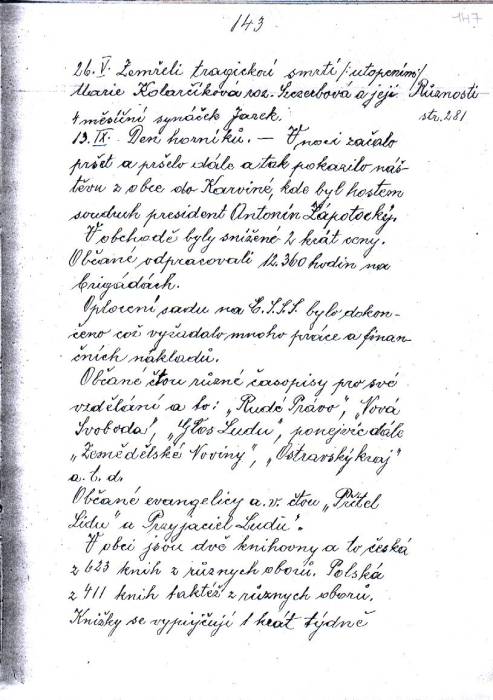 143
147
26. V. Zemřeli tragickou smrtí /:utopením:/
Marie Kolarčíkova roz. Szczerbová a její
Různosti
str. 281
4 měsíční synáček Jarek.
13. IX. Den horníků. — V noci začalo
pršet a pršelo dále a tak pokazilo náv-
štěvu z obce do Karviné, kde byl hostem
soudruh president Antonín Zápotocký.
V obchodě byly snížené 2 krát ceny.
Občané odpracovali 12.360 hodin na
brigádách.
Oplocení sadu na Č.S.S.S. bylo dokon-
čeno což vyžadalo mnoho práce a finan-
čních nákladů.
Občané čtou různé časopisy pro své
vzdělání a to: „Rudé Právo", „Nová
Svoboda", „Głos Ludu", ponejvíc dále
„Zemědělské Noviny", „Ostravský kraj"
a. t. d.
Občané evangelicy a. v. čtou „Přítel
Lidu" a „Przyjaciel Ludu".
V obci jsou dvě knihovny a to česká
z 623 knih z různych oborů. Polská
z 411 knih taktéž z různych oborů.
Knižky se vypůjčují 1 krát týdně